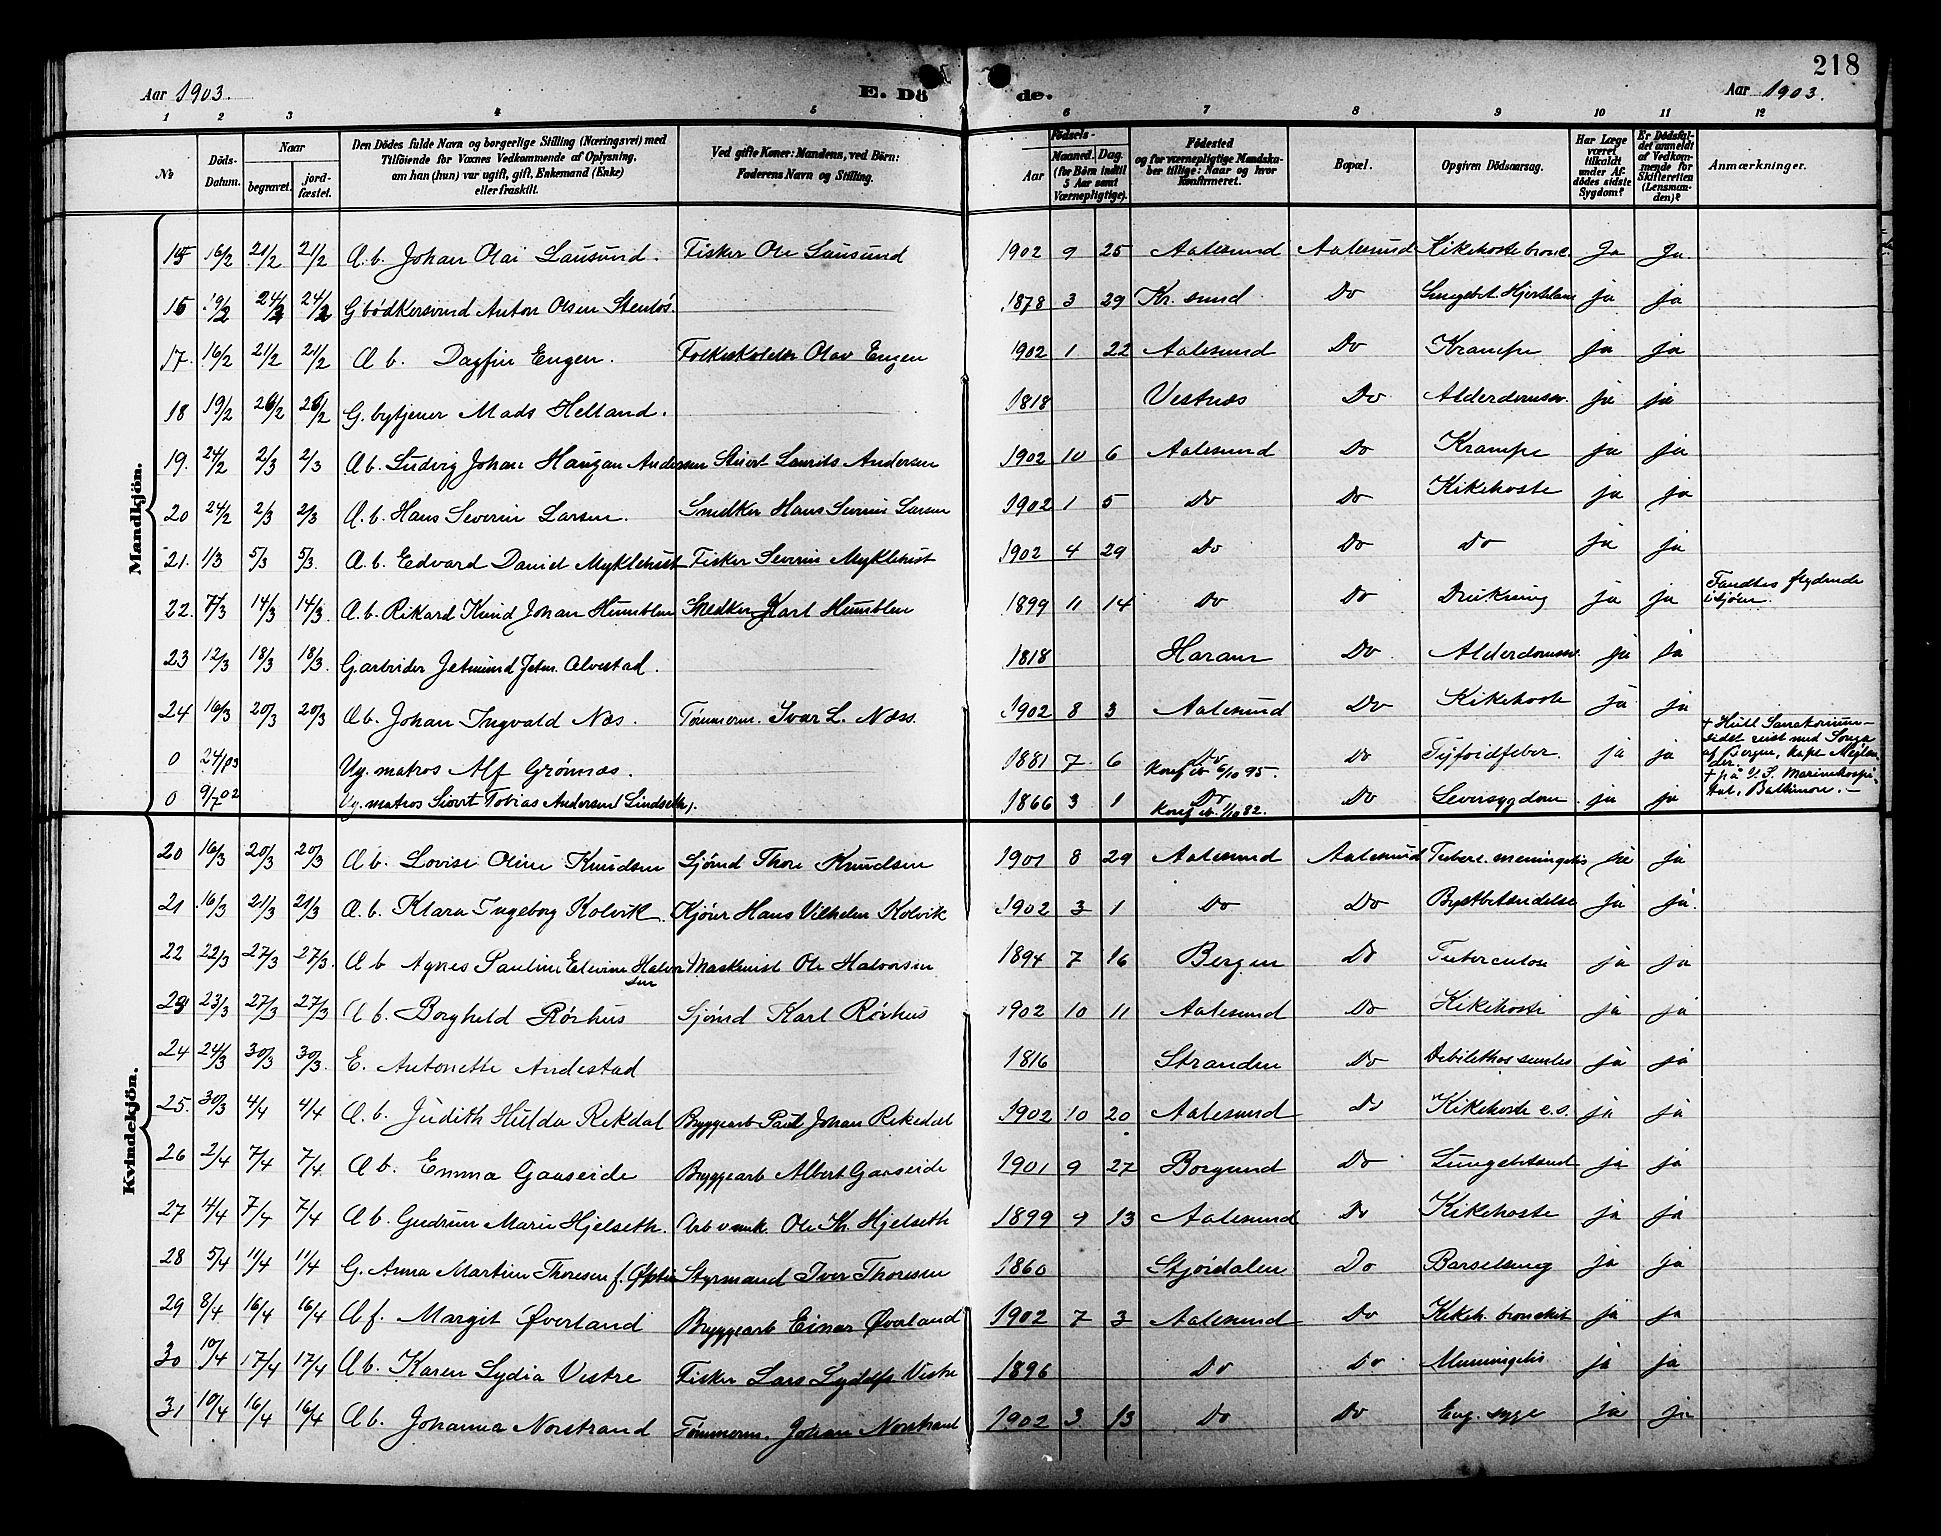 218
Aar 1903. E. Dö de. Aar 1903.
1 2 3 4 5 6 7 8 9 10 11 12
No Döds-Datum. Naar begravet. jordfæstet. Den Dödes fulde Navn og borgerlige Stilling (Næringsvei) med Tilföiende for Voxnes Vedkommende af Oplysning, om han (hun) var ugift, gift, Enkemand (Enke) eller fraskilt. Ved gifte Koner: Mandens, ved Börn: Faderens Navn og Stilling. Födsels- Aar Maaned. Dag. (for Börn indtil 5 Aar samt Værnepligtige). Födested og for værnepligtige Mandskaber tillige: Naar og hvor konfirmeret. Bopæl. Opgiven Dödsaarsag. Har Læge været tilkaldt under Afdödes sidste Sygdom? Er Dödsfaldet anmeldt af Vedkommende for Skifteretten (Lensmanden)? Anmærkninger.
Mandkjön.
15 16/2 21/2 21/2 A.b. Johan Olai Lausund. Fisker Ole Lausund 1902 9 25 Aalesund Aalesund Kikehoste bronc. Ja Ja.
16 19/2 24/2 24/2 G bødkersvend Anton Olsen Stenløs. 1878 3 29 Kr.sund Do ja ja
17. 16/2 21/2 21/2 A b. Dagfin Engen. Olav Engen 1902 1 22 Aalesund Do Krampe ja ja
18 19/2 26/2 26/2 G. bytjener Mads Helland. 1818 Vestnæs Do Alderdomssv. ja ja
19. 24/2 2/3 2/3 A b. Ludvig Johan Haugan Andersen Stuert Laurits Andersen 1902 10 6 Aalesund Do Krampe ja ja
20 24/2 2/3 2/3 A. b. Hans Severin Larsen. Snedker Hans Severin Larsen 1902 1 5 Do Do Kikehoste ja ja
21. 1/3 5/3 5/3. A. b. Edvard Daniel Myklebust Fisker Severin Myklebust 1902 4 29 Do Do Do ja ja
22. 7/3 14/3 14/3. A. b. Rikard Knud Johan Humblen Snedker Karl Humblen 1899 11 14 Do Do Drukning ja ja Fandtes flydende i sjøen.
23 12/3 18/3 18/3. G arbeider Jetmund Jetm. Alvestad. 1818 Haram Do. Alderdomssv. ja ja
24 16/3 20/3 20/3. A b. Johan Ingvald Næs. Tømmerm. Ivar L. Næss. 1902 8 3 Aalesund Do Kikehoste ja ja
0 24/1 03 Ug. matros Alf Grønnæs. 1881 7 6 Do konf ib. 6/10 95. Do Tyfoidfeber ja ja + Hull Sanatorium sidst reist med Songa af Bergen, kapt
0 9/7 02 Ug. matros Sivert Tobias Andersen Lindseth. 1866 3 1 Do konf ib. 1/10 82. Do Leversygdom ja ja + på U.S. Marinehospital, Baltimore.
Kvindekjön.
20 16/3 20/3 20/3 A b. Lovise Oline Knudsen Sjømd Thore Knudsen 1901 8 29 Aalesund Aalesund Tuberc. meningitis ja ja
21 16/3 21/3 21/3 A. b. Klara Ingeborg Kolvik. Kjører Hans Vilhelm Kolvik 1902 3 1 Do Do Brystbetændelse ja ja.
22 22/3 27/3 27/3. A b Agnes Pauline Elevine Halvorsen Maskinist Ole Halvorsen 1894 7 16 Bergen Do Tuberculose ja ja
23 23/3 27/3 27/3 A b. Borghild Rørhus Sjømd Karl Rørhus 1902 10 11 Aalesund Do Kikehoste ja ja
24 24/3 30/3 30/3. E. Antonette Andestad 1816 Stranden Do Debilitas senilis ja ja
25. 30/3 4/4 4/4 A. b. Judith Hulda Rekdal Bryggearb Paul Johan Rekedal 1902 10 20 Aalesund Do Kikehoste e.s. ja ja
26 2/4 7/4 7/4 A b. Emma Gaaseide Bryggearb Albert Gaaseide 1901 9 27 Borgund Do Lungebetænd ja ja
27 4/4 7/4 7/4 A b. Gudrun Marie Hjelseth. Ole Kr. Hjelseth 1899 9 13 Aalesund Do Kikehoste ja ja
28 5/4 11/4 11/4 G. Anna Martine Thoresen f. Styrmand Iver Thoresen 1860 Stjørdalen Do Barselseng ja ja
29 8/4 16/4 16/4 A f. Margit Øverland Bryggearb Einar Øverland 1902 7 3 Aalesund Do Kikeh. bronchit ja ja
30 10/4 17/4 17/4 A b. Karen Lydia Vestre Fisker Lars Vestre 1896 Do Do Meningitis ja ja
31 10/4 16/4 16/4 A b. Johanna Norstrand Tømmerm. Johan Norstrand 1902 3 13 Do Do Eng. syge ja ja